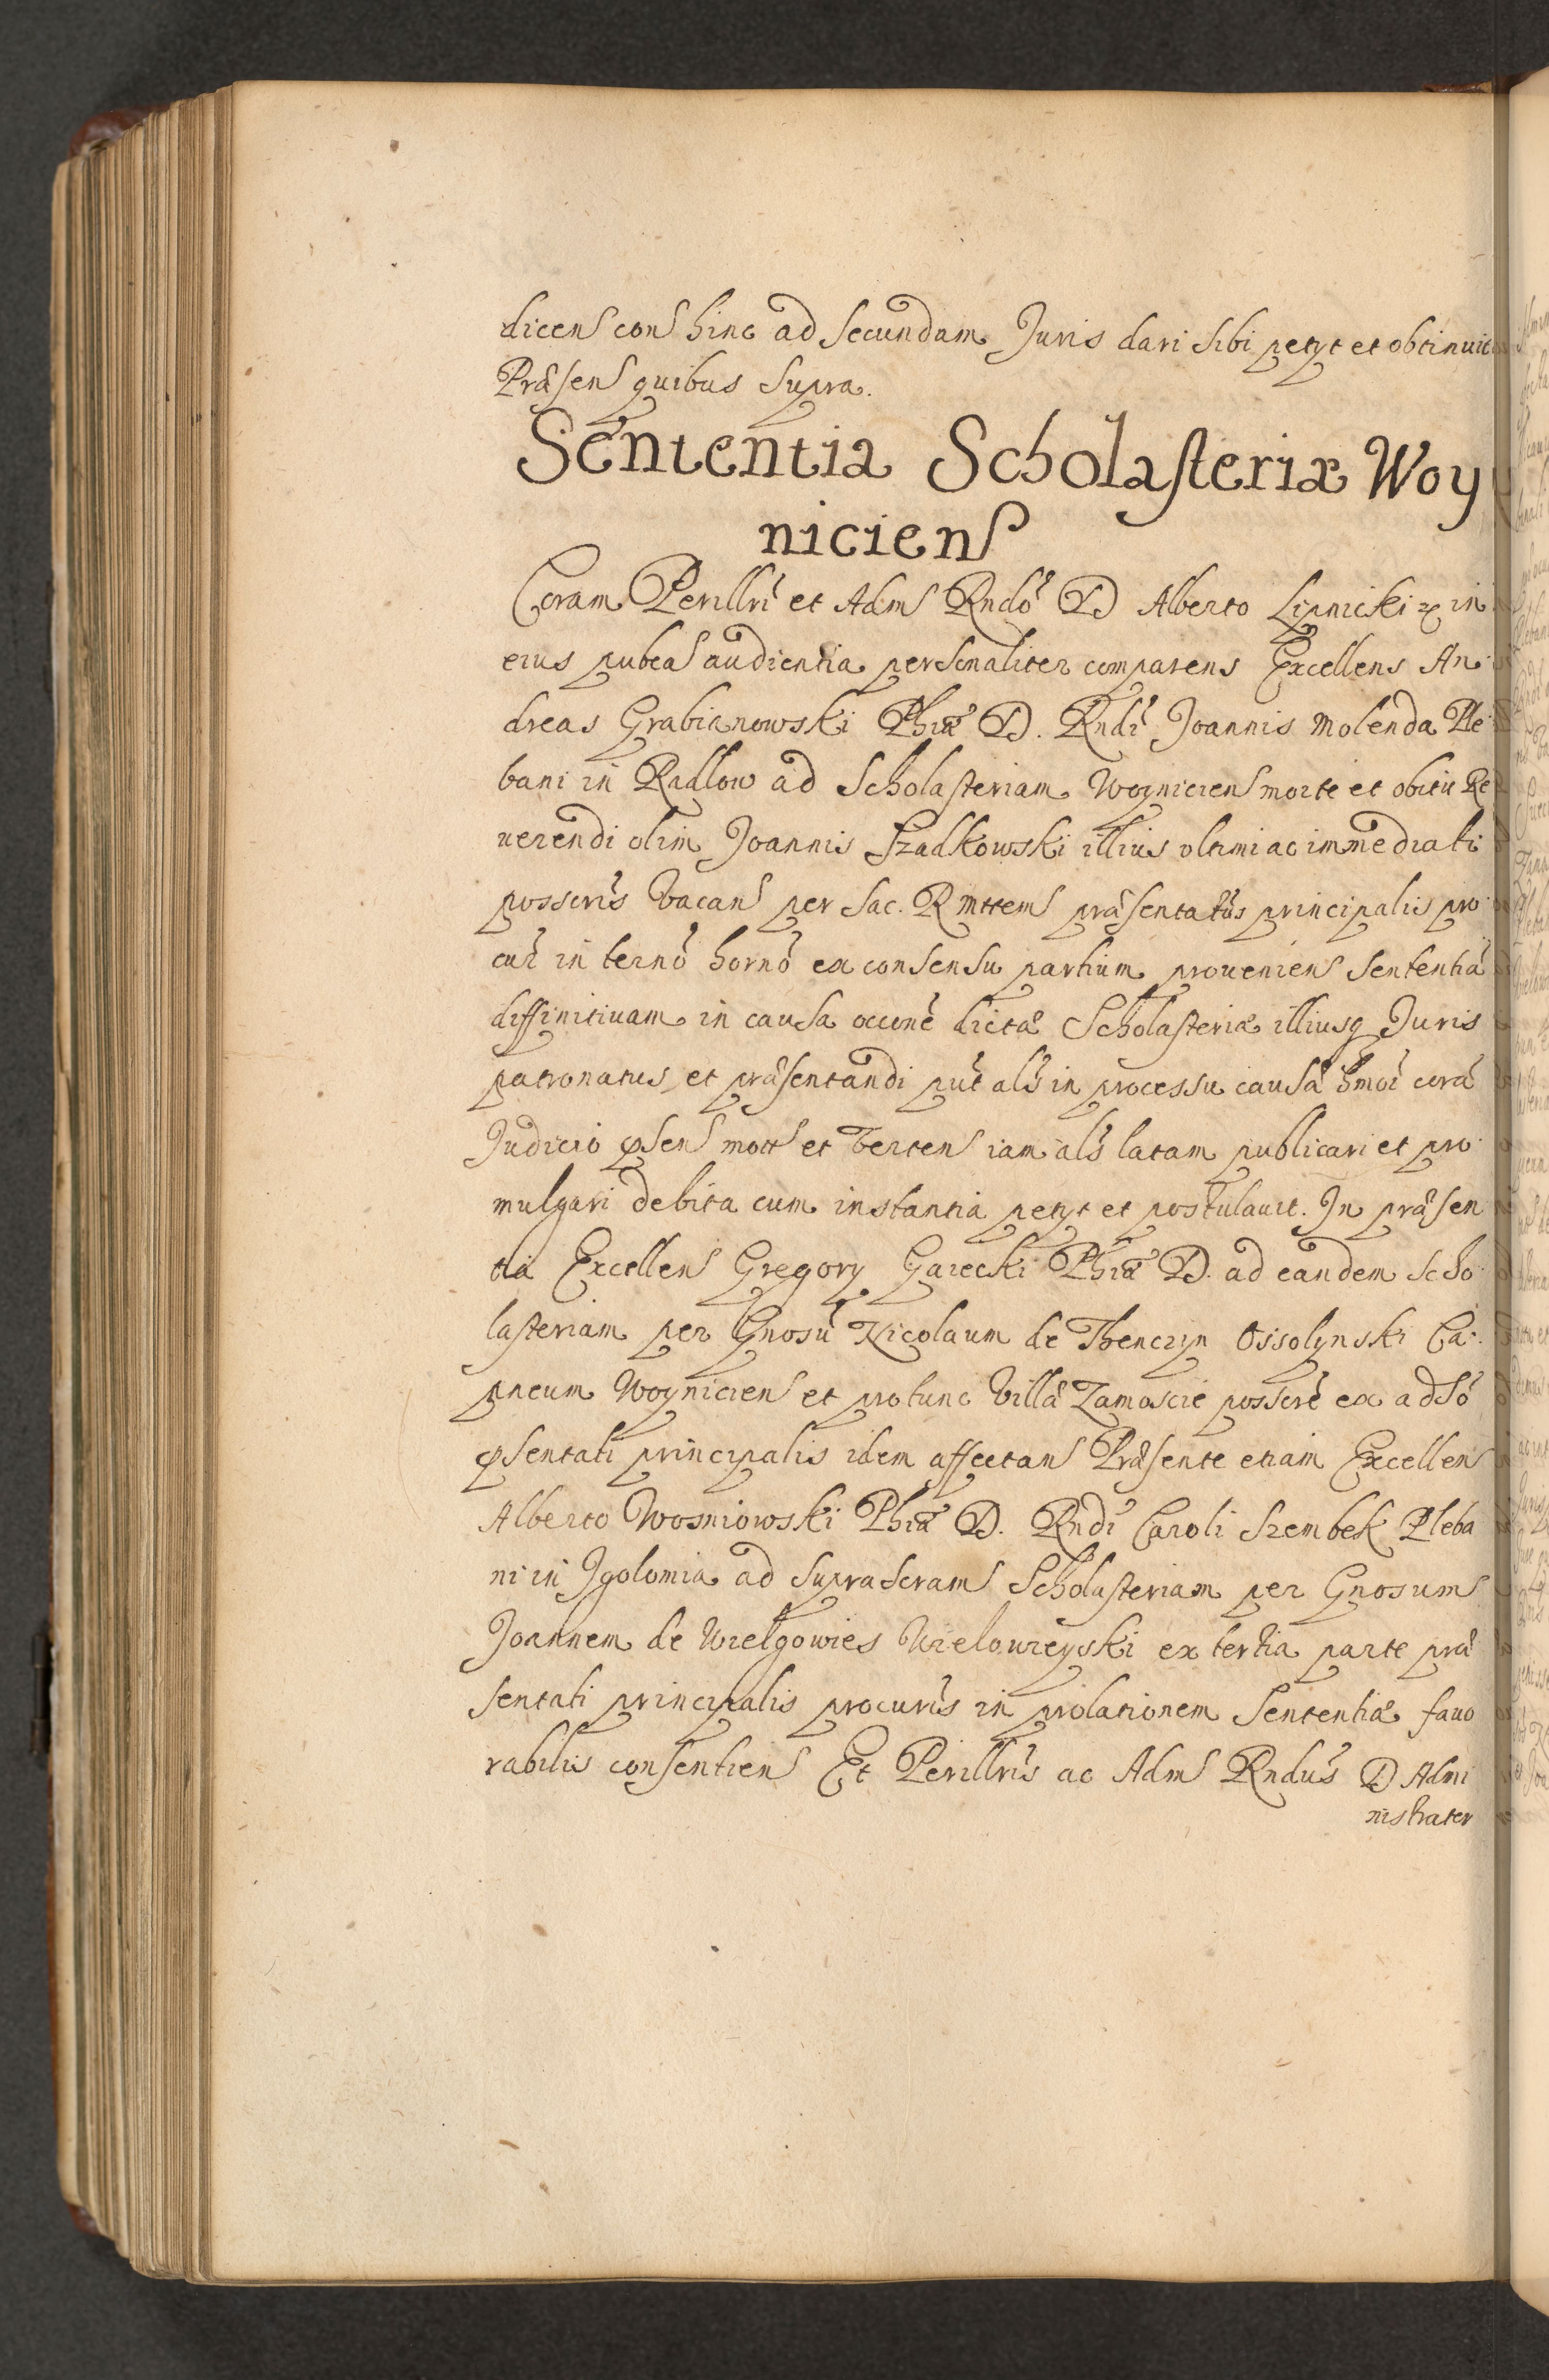 dicens cons hinc ad secundam Juris dari sibi petyt et obtinuit
Præsens quibus supra.
Sententia Scholasteriæ Woy
niciens
Coram Perillri et Adm Rndo D Alberto Lipnicki &c in
eius pubca audientia personaliter comparens Excellens An
dreas Grabianowski Phiæ D. Rndi Joannis Molenda Ple
bani in Radlow ad Scholasteriam Woyniciens morte et obitu Re
uerendi olim Joannis Szadkowski illius vltimi ac immediati
possoris vacan per Sac. R mttem præsentatus principalis pro
cur in termo horno ex consensu partium proueniens sententiã
diffinitiuam in causa occone dictæ Scholasteriæ illiusq Juris
patronatus et præsentandi put als in processu causæ hmoi corã
Judicio psens mott et verten iam als latam publicari et pro
mulgari debita cum instantia petyt et postulauit. In præsen
tia Excellens Gregory Gaiecki Phiæ D. ad eandem scho
lasteriam per Gnosum Nicolaum de Thenczyn Ossolynski Ca
pneum Woyniciens et protunc villæ Zamoscie possore ex adso
psentati principalis idem affectan Præsente etiam Excellen
Alberto Wosniowski Phiæ D. Rndi Caroli Szembek Pleba
ni in Jgolomia ad suprascram Scholasteriam per Gnosum
Joannem de Wielgowies Wielowieyski ex tertia parte præ
sentati principalis procuris in prolationem Sententiæ fauo
rabilis consentien Et Perillris ac Adm Rndus D Admi
nistrator